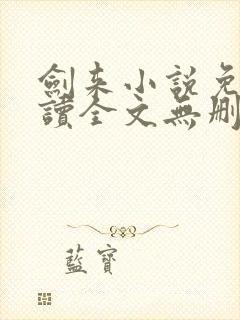 劍來小說免
讀全文無刪
藍寶